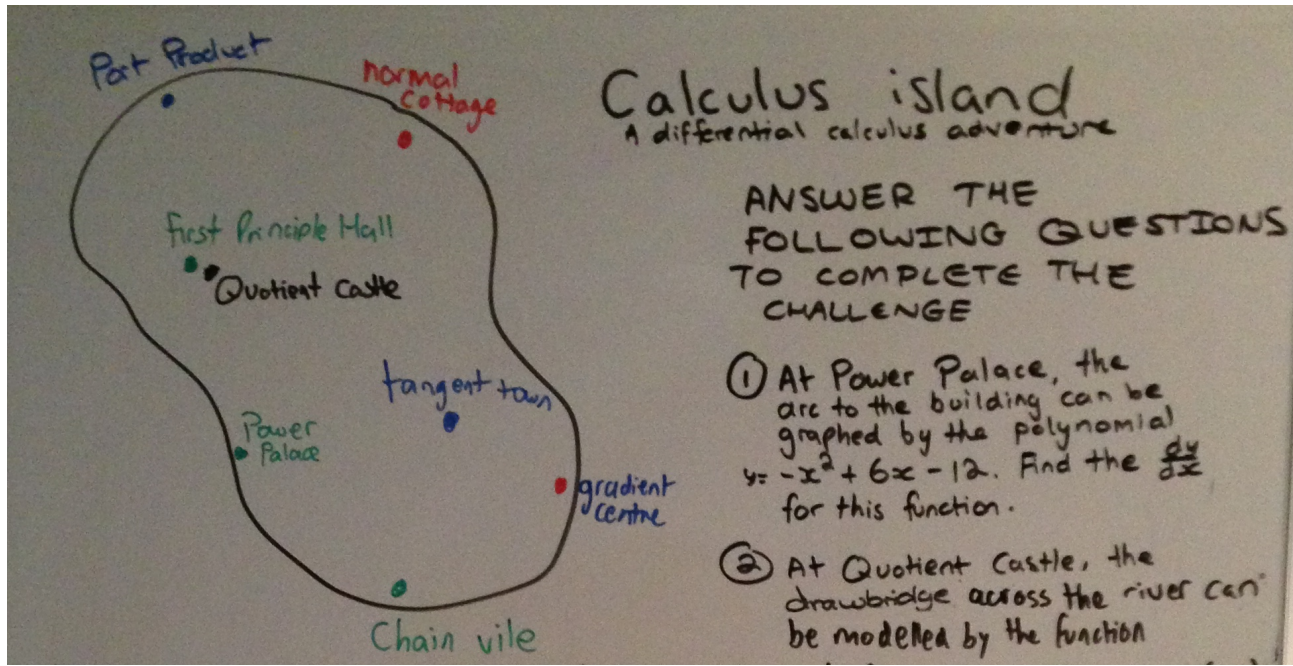 Port Product
normal
cottage
first Principle Hall
Quotient castle
tangent town
Power
Palace
gradient
centre
Chain vile
Calculus island
A differential calculus adventure
ANSWER THE
FOLLOWING QUESTIONS
TO COMPLETE THE
CHALLENGE
① At Power Palace, the
arc to the building can be
graphed by the polynomial
y= -x² + 6x - 12. Find the dy/dx
for this function.
② At Quotient Castle, the
drawbridge across the river can
be modelled by the function